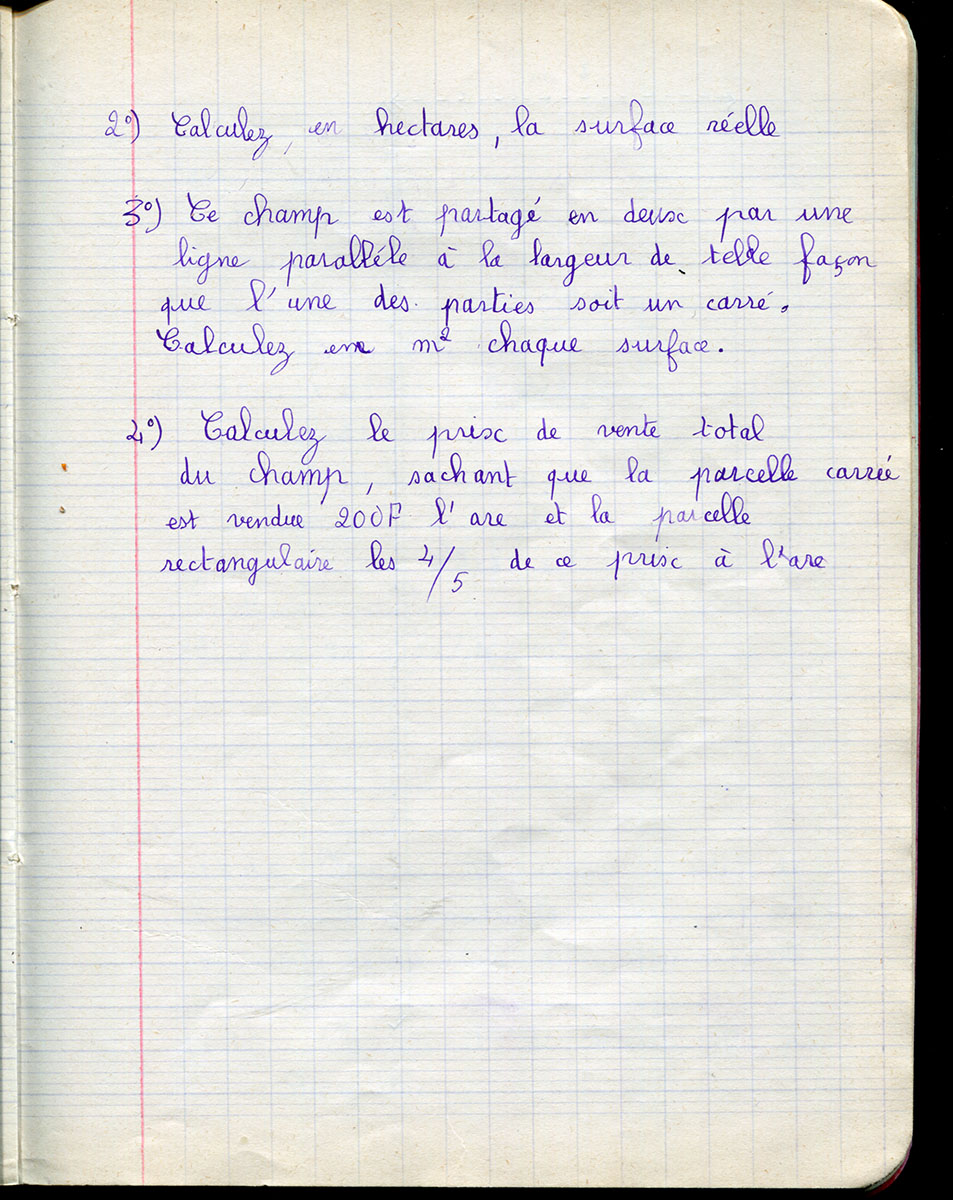 2°) Calculez, en hectares, la surface réelle
3°) Ce champ est partagé en deux par une
ligne paralléle à la largeur de telle façon
que l'une des parties soit un carré.
Calculez en m² chaque surface.
4°) Calculez le prix de vente total
du champ, sachant que la parcelle carrée
est vendue 200F l'are et la parcelle
rectangulaire les 4/5 de ce prix à l'are